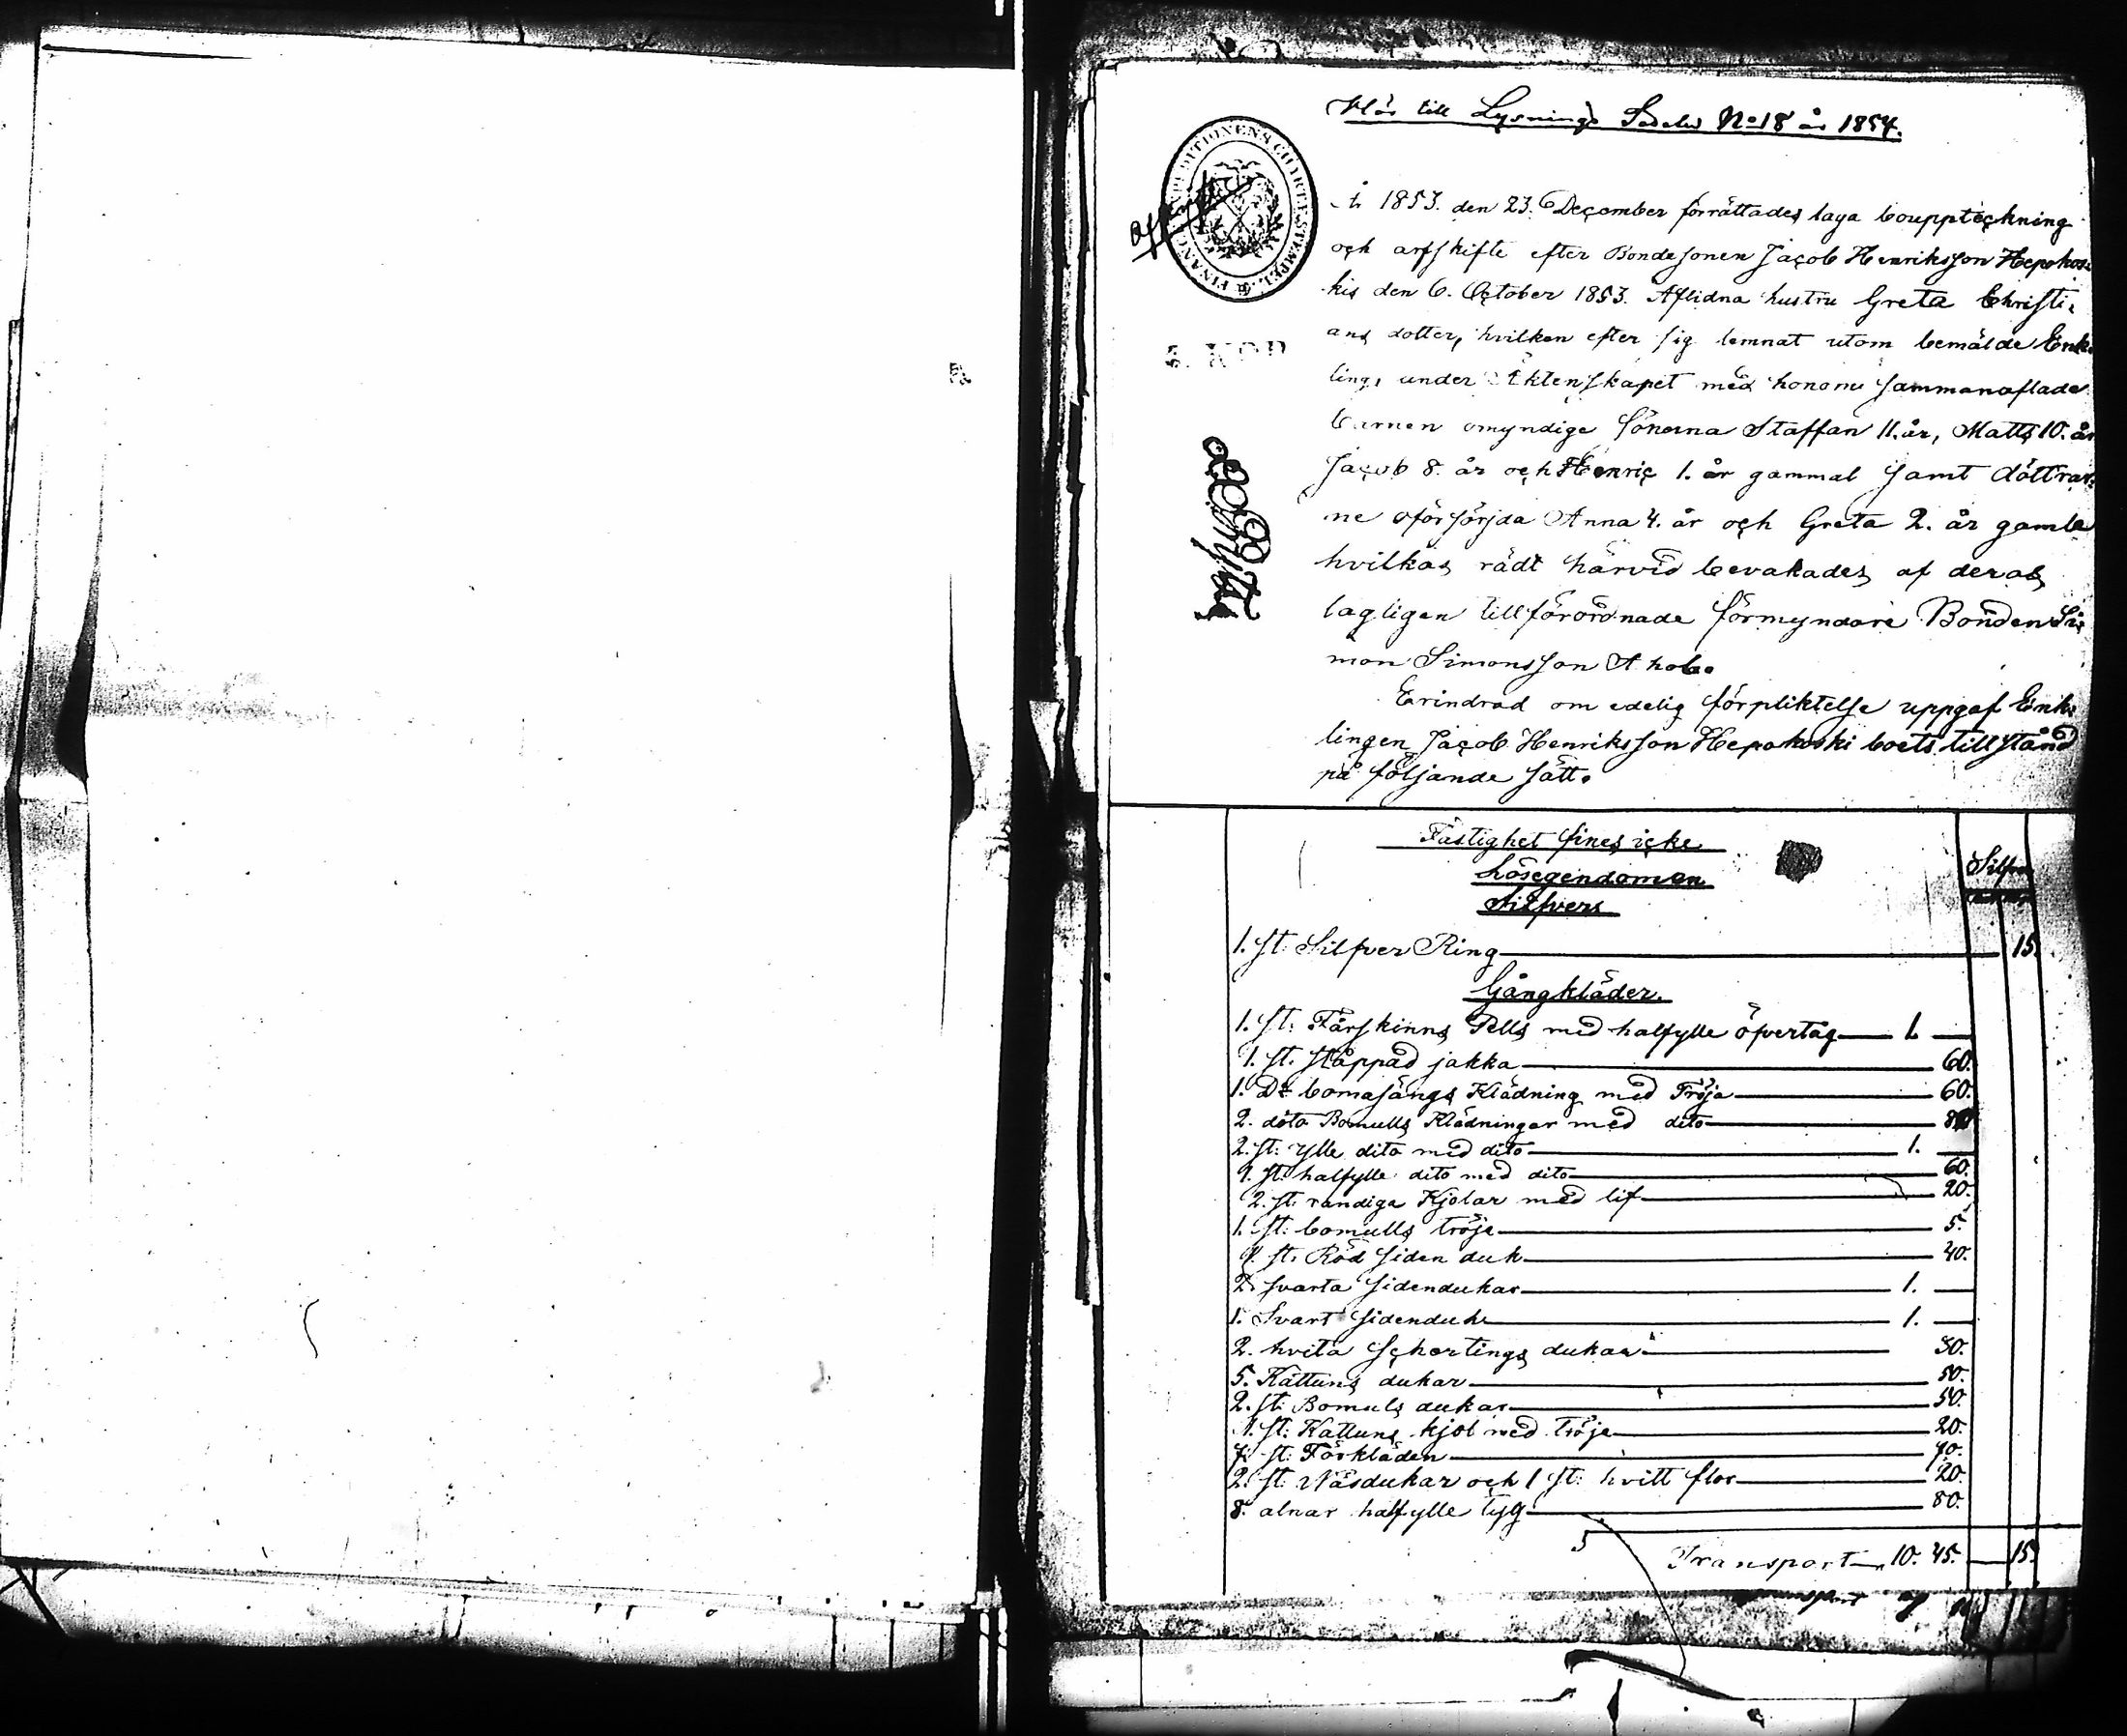 Hör till Lysnings Sedel No 18 år 1854.
FINANCE EXPEDITIONENS CHARTÆ STEMPEL.
År 1853. den 23. December förrättades laga bouppteckning
och arfskifte efter Bondesonen Jacob Henriksson Hepokos-
kis den 6. October 1853. Aflidna hustru Greta Christi-
ans dotter, hvilken efter sig lemnat utom bemälde Enk-
ling, under Äktenskapet med honom sammanaflade
barnen omyndige sönerna Staffan 11. år, Matts 10. år
Jacob 8. år och Henric 1. år gammal samt döttrar-
ne oförsörjda Anna 4. år och Greta 2. år gamla
hvilkas rädt härvid bevakades af deras
lagligen tillförordnade förmyndare Bonden Si-
mon Simonsson Aho.
Erindrad om edelig förpliktelse uppgaf Enk-
lingen Jacob Henriksson Hepokoski boets tillstånd
på följande sätt.
Fastighet fines icke
Lösegendomen
Silfvers
Silfver
1. st: Silfver Ring 15.
Gångkläder.
1. st: Fårskinns Pells med halfylle öfvertag 1. —
1. st. ståppad jakka 60.
1. Do bomasängs Klädning med Tröja 60.
2. dito Bomulls Klädningar med dito 80
2. st: ylle dito med dito 1. —
1. st: halfylle dito med dito 60.
2. st: randiga Kjolar med lif 20.
1. st: bomulls tröja 5.
1. st. Röd siden duk 40.
2. svarta sidendukar 1. —
1. Svart sidenduk 1. —
2. hvita schertings dukar 30.
5. Kattuns dukar 50.
2. st: Bomuls dukar 50.
1. st: Kattuns kjol med tröja 20.
7. st: Förkläden 70.
2. st: Näsdukar och 1 st: hvitt flor 20.
8. alnar halfylle tyg 80.
Transport 10. 45. — 15.